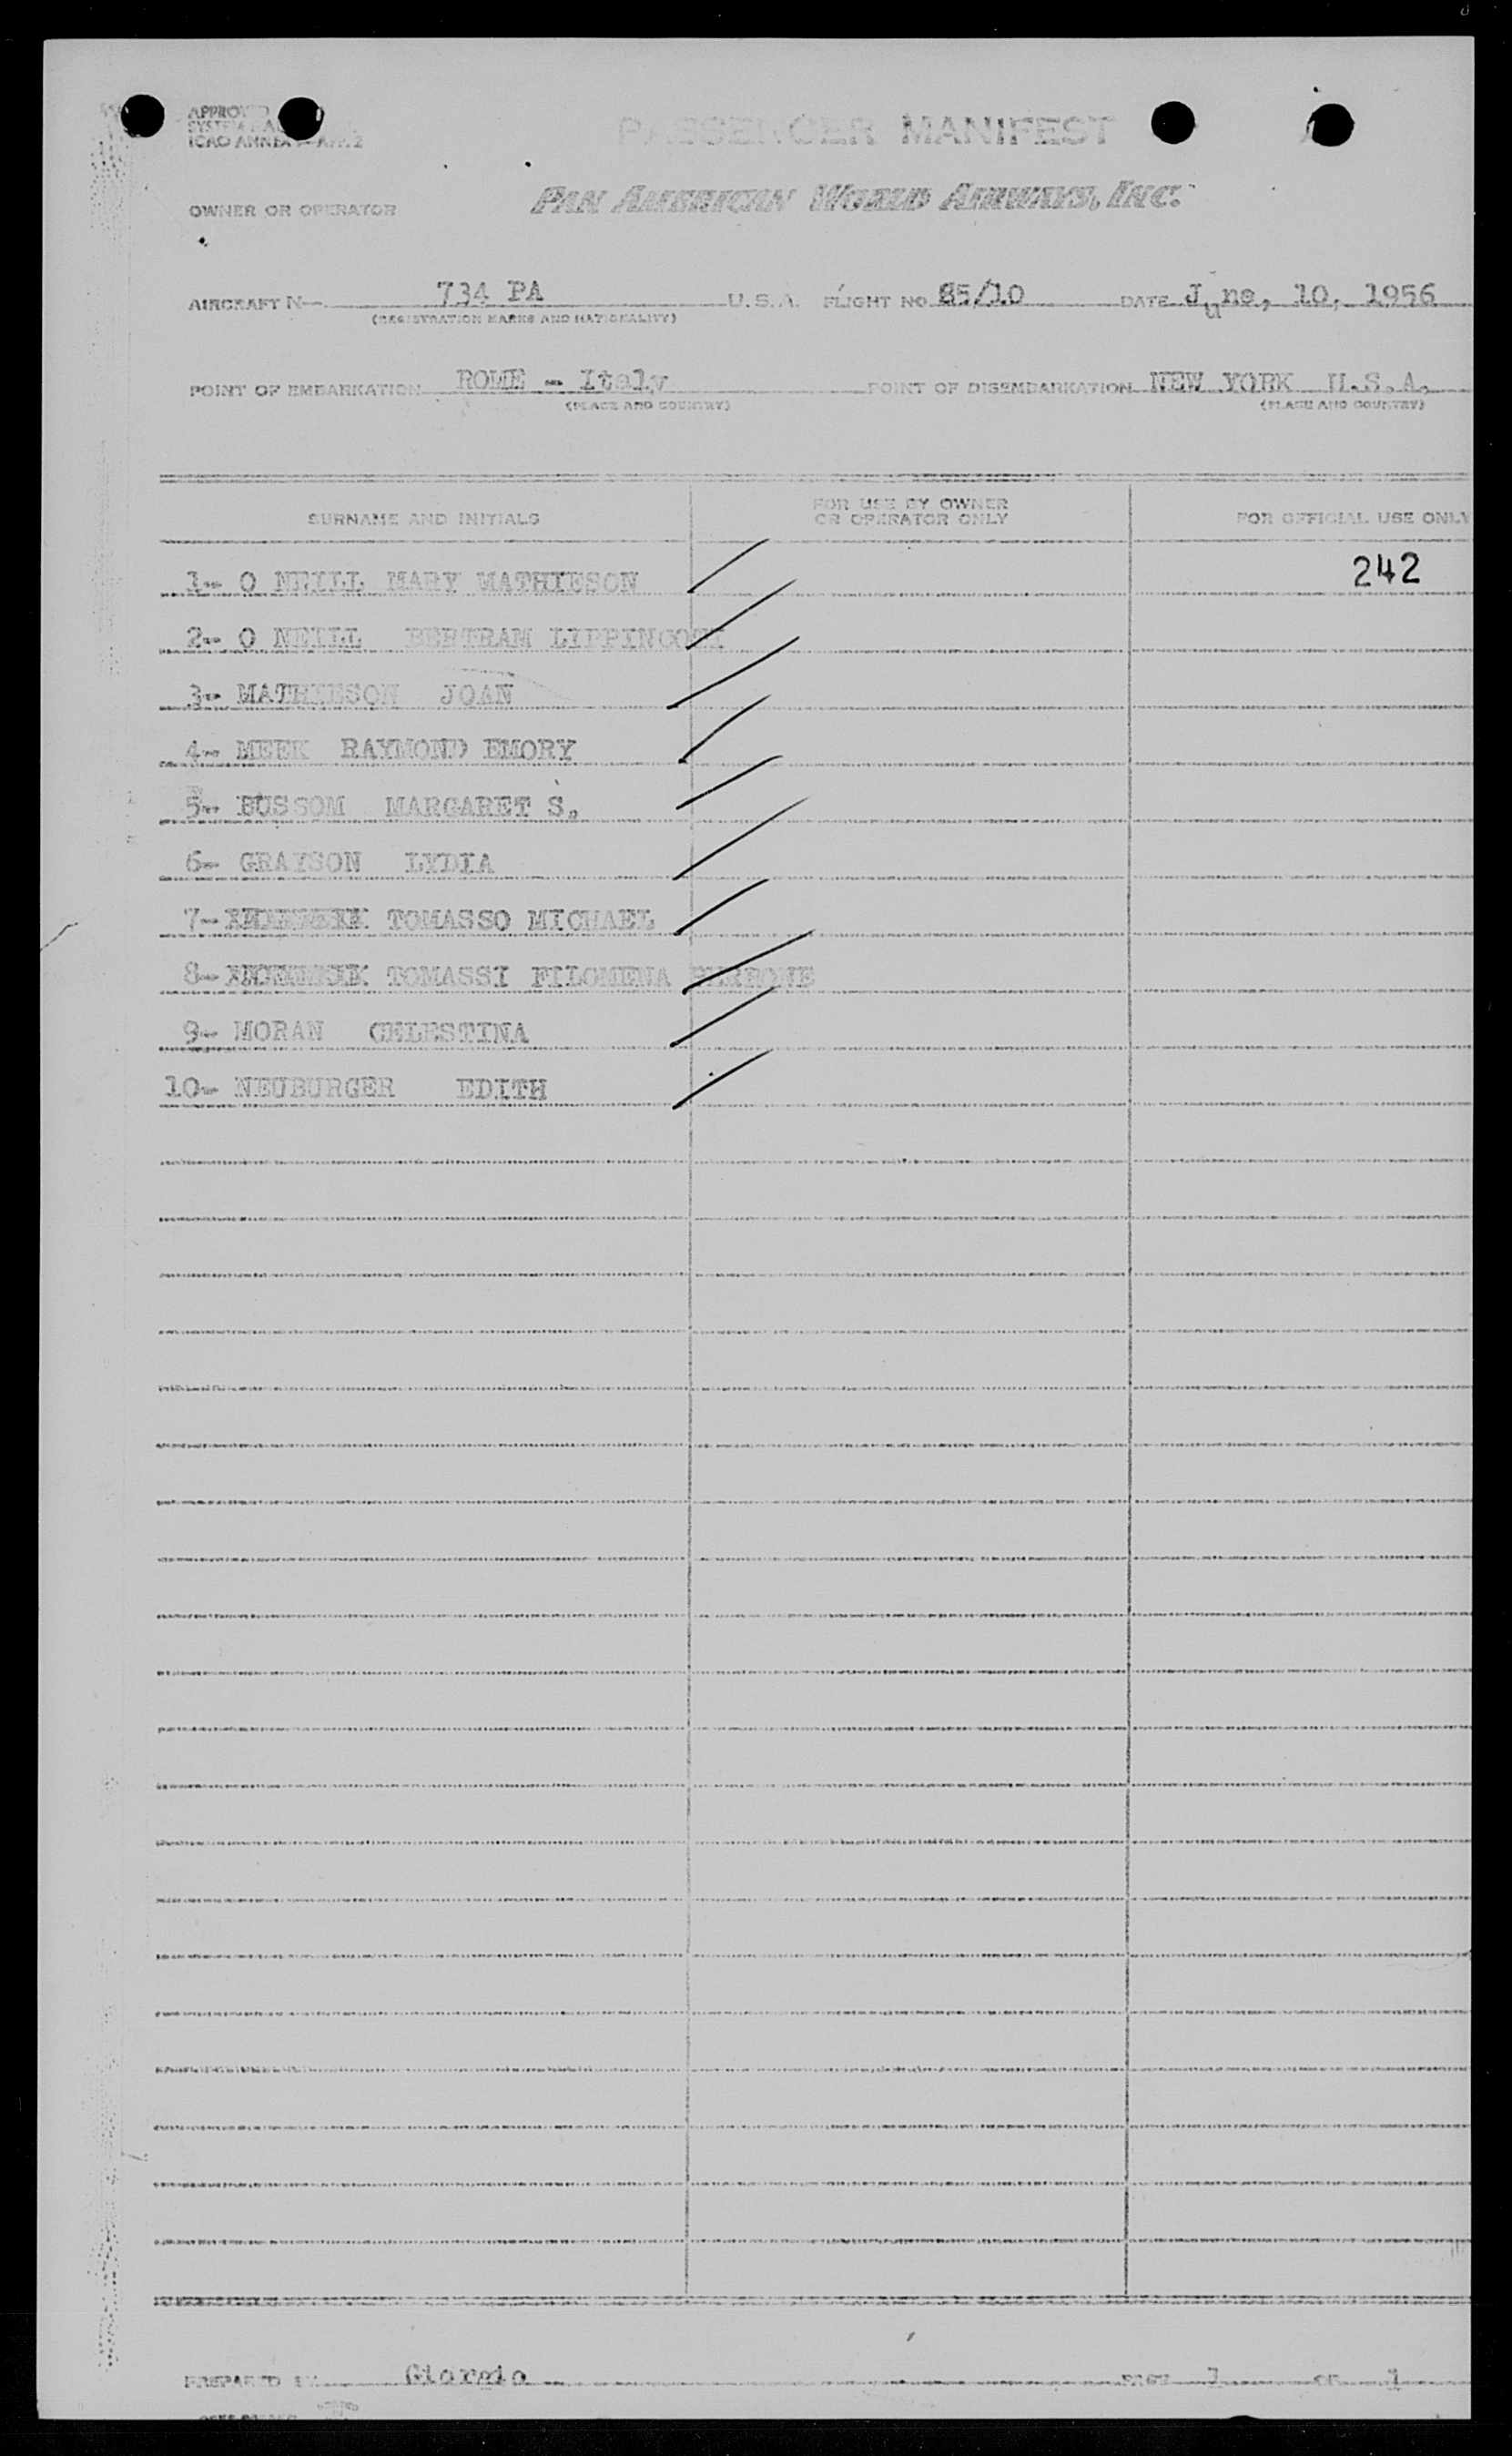 PASSENGER MANIFEST
ICAO ANNEX
OWNER OR OPERATOR PAN AMERICAN WORLD AIRWAYS, INC.
AIRCRAFT N— 734 PA U.S.A. FLIGHT NO 85/10 DATE June, 10, 1956
(REGISTRATION MARKS AND NATIONALITY)
POINT OF EMBARKATION ROME - Italy POINT OF DISEMBARKATION NEW YORK U.S.A.
(PLACE AND COUNTRY) (PLACE AND COUNTRY)
SURNAME AND INITIALS FOR USE BY OWNER OR OPERATOR ONLY FOR OFFICIAL USE ONLY
1- O NEILL MARY MATHIESON 242
2- O NEILL BERTRAM LIPPINCOTT
3- MATHIESON JOAN
4- MEEK RAYMOND EMORY
5- BUSSOM MARGARET S.
6- GRAYSON LYDIA
7- TOMASSO MICHAEL
8- TOMASSI FILOMENA
9- MORAN CELESTINA
10- NEUBURGER EDITH
PREPARED BY Giorgio PAGE 1 OF 1